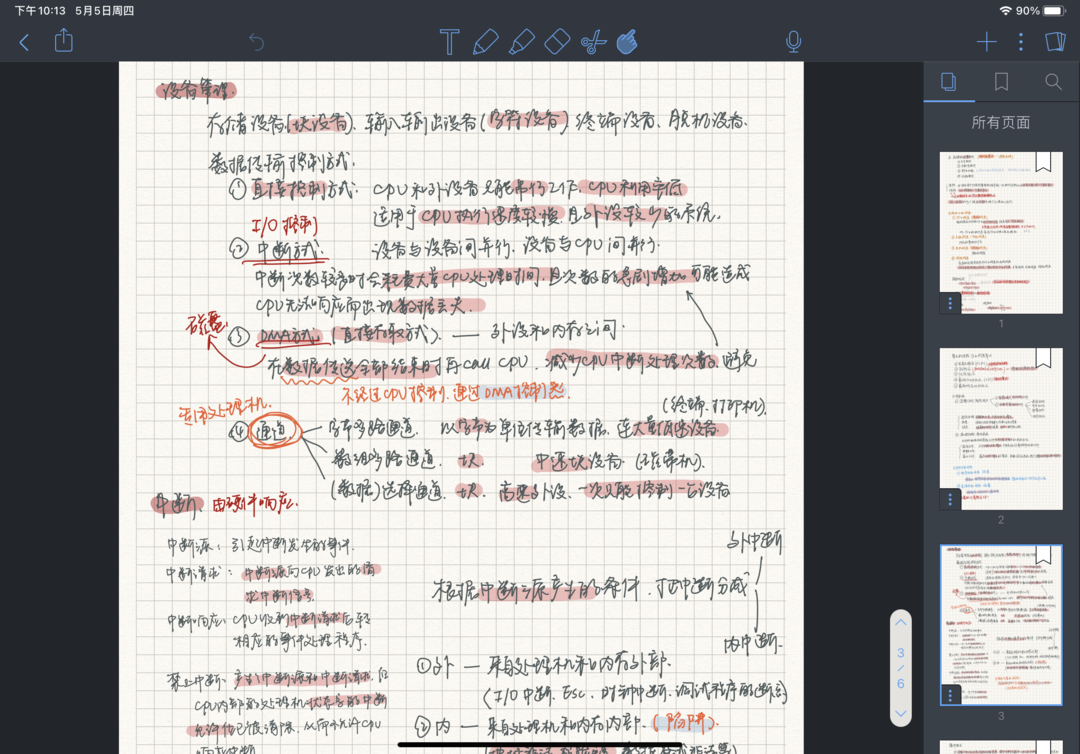 下午10:13 5月5日周四
90%
设备管理.
存储设备(块设备)、输入输出设备(字符设备) 终端设备、脱机设备.
所有页面
数据传输控制方式:
① 直接控制方式: CPU和外设备只能串行工作 CPU利用率低
适用于CPU执行速度较慢,且外设较少的系统.
I/O控制
② 中断方式: 设备与设备间并行、设备与CPU间并行.
中断次数较多时会耗费大量CPU处理时间,且次数的急剧增加可能造成
CPU无法响应而出现数据丢失.
磁盘.
③ DMA方式 (直接存取方式). —— 外设和内存之间.
在数据传送全部结束时再call CPU. 减少CPU中断处理次数,避免
不经过CPU控制,通过DMA控制器.
(终端、打印机).
④ 通道 字节多路通道. 以字节为单位传输数据. 连大量低速设备
数组多路通道. 块. 中速块设备.
(数据)选择通道. 块. 高速外设、一次只能控制一台设备
中断. 由硬件响应.
中断源: 引起中断发生的事件.
外中断
中断请求: 中断源向CPU发出的请
求中断信号
根据中断源产生的条件,可把中断分成
中断响应: CPU收到中断请求后转
相应的事件处理程序.
内中断.
① 外 — 来自处理机和内存外部.
禁止中断: 产生中断源和中断请求,但
CPU内部的处理机状态字的中断
允许位已被清除,从而不允许CPU
(I/O中断、Esc、时钟中断、调试程序的断点)
② 内 — 来自处理机和内存内部.(陷阱).
响应中断
3
/
6
1
2
3